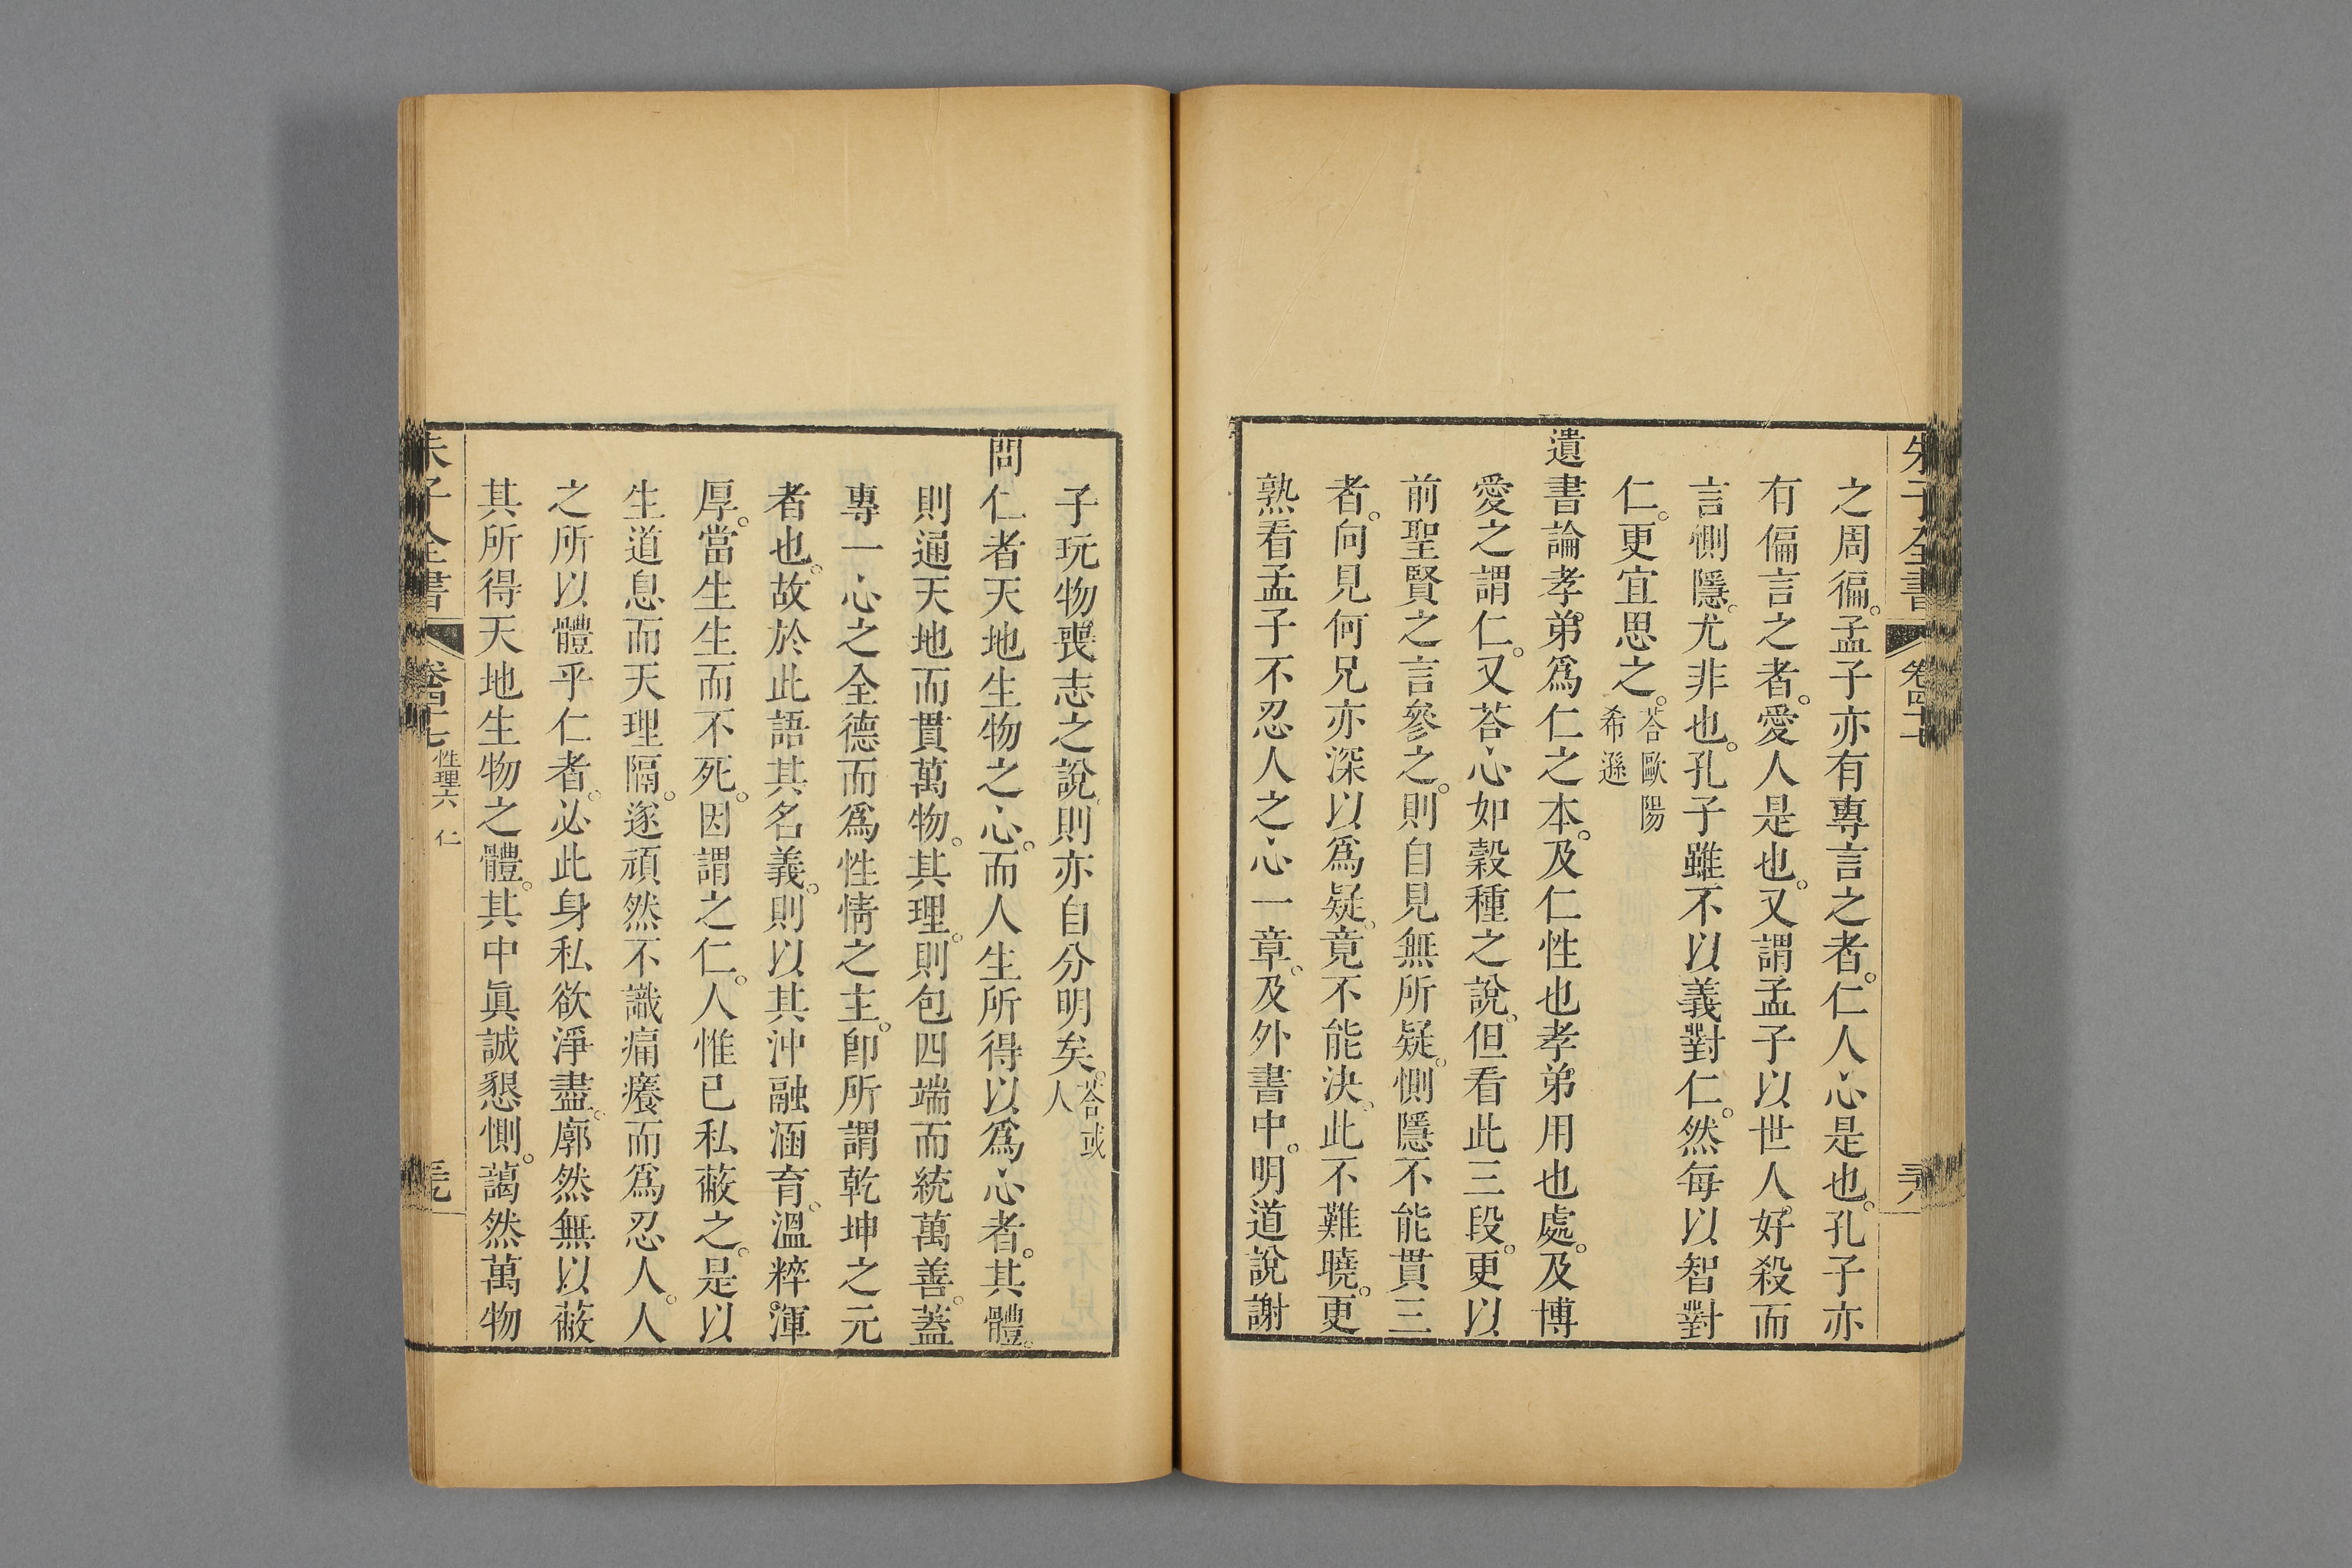 朱子全書 卷四十七 三八
之周徧。孟子亦有專言之者。仁人心是也。孔子亦
有偏言之者。愛人是也。又謂孟子以世人好殺而
言惻隱。尤非也。孔子雖不以義對仁。然每以智對
仁。更宜思之。答歐陽希遜
遺書論孝弟爲仁之本。及仁性也孝弟用也處。及博
愛之謂仁。又荅心如穀種之說。但看此三段。更以
前聖賢之言參之。則自見無所疑。惻隱不能貫三
者。向見何兄亦深以爲疑。竟不能決。此不難曉。更
熟看孟子不忍人之心一章。及外書中。明道說謝
子玩物喪志之說。則亦自分明矣。荅或人
問仁者天地生物之心。而人生所得以爲心者。其體。
則通天地而貫萬物。其理。則包四端而統萬善。蓋
專一心之全德而爲性情之主。卽所謂乾坤之元
者也。故於此語其名義。則以其沖融涵育。溫粹渾
厚。當生生而不死。因謂之仁。人惟已私蔽之。是以
生道息而天理隔。遂頑然不識痛癢而爲忍人。人
之所以體乎仁者。必此身私欲淨盡。廓然無以蔽
其所得天地生物之體。其中眞誠懇惻。藹然萬物
朱子全書 卷四十七 性理六 仁 三九